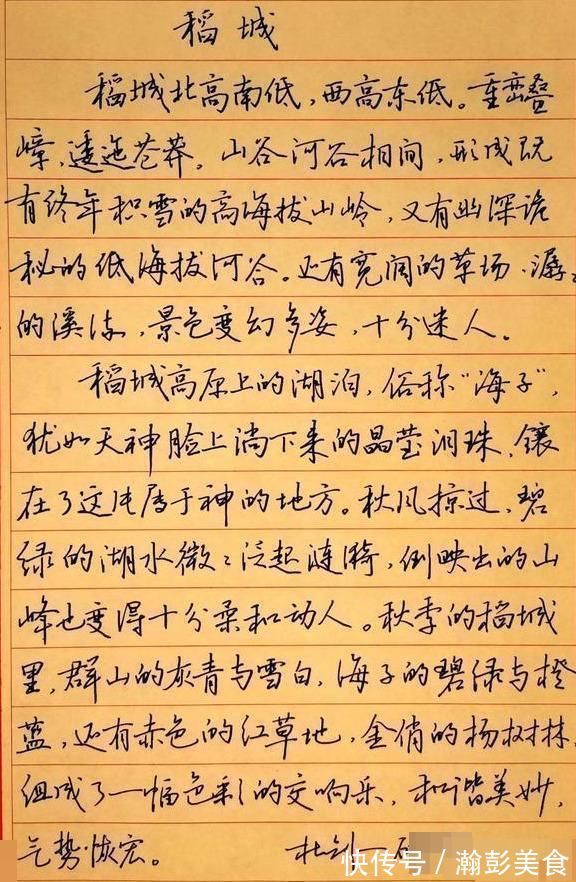 稻城
稻城北高南低，西高东低。重峦叠
嶂，逶迤苍莽。山谷河谷相间，形成既
有终年积雪的高海拔山岭，又有幽深诡
秘的低海拔河谷。还有宽阔的草场、潺々
的溪流，景色变幻多姿，十分迷人。
稻城高原上的湖泊，俗称“海子”，
犹如天神脸上淌下来的晶莹泪珠，镶
在了这片属于神的地方。秋风掠过，碧
绿的湖水微々泛起涟漪，倒映出的山
峰也变得十分柔和动人。秋季的稻城
里，群山的灰青与雪白，海子的碧绿与橙
蓝，还有赤色的红草地，金俏的杨树林，
组成了一幅色彩的交响乐，和谐美妙，
气势恢宏。
快传号／瀚彭美食